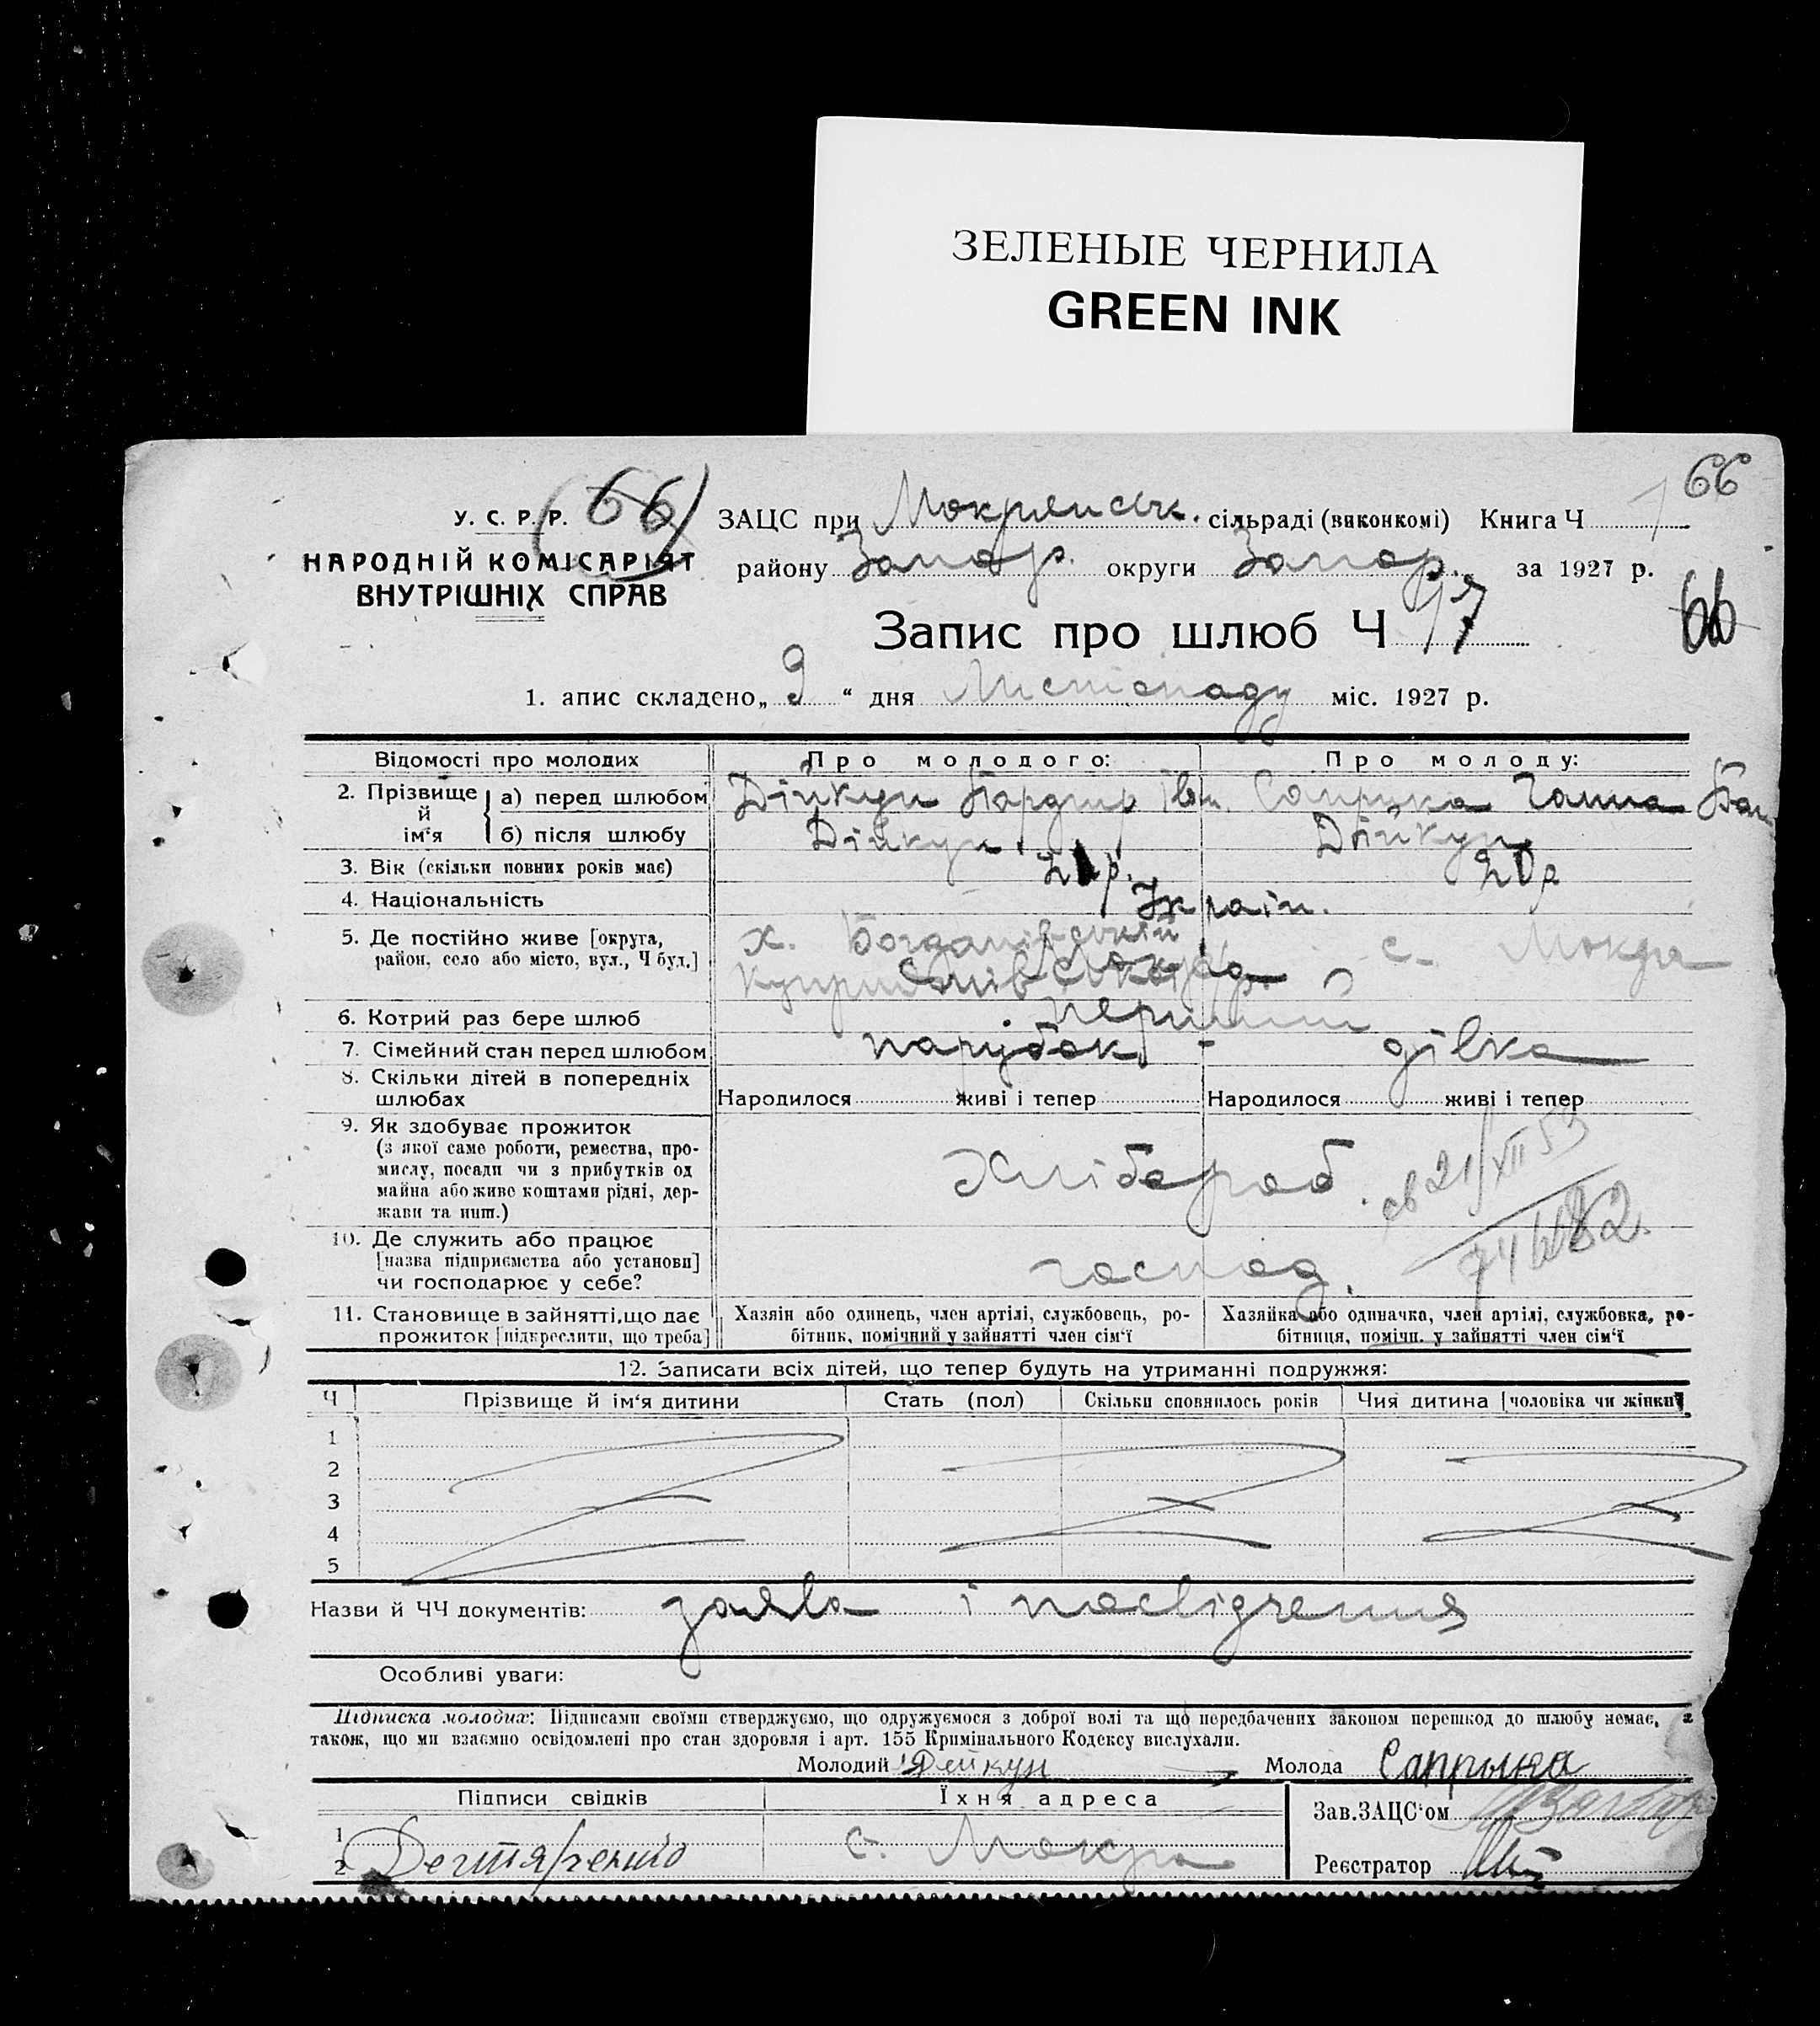 ЗЕЛЕНЫЕ ЧЕРНИЛА
GREEN INK
66
У. С. Р. Р. (66)
НАРОДНІЙ КОМІСАРІЯТ
ВНУТРІШНІХ СПРАВ
ЗАЦС при Мокрянськ. сільраді (виконкомі) Книга Ч 1
району Запор. округи Запор. за 1927 р.
Запис про шлюб Ч 17 66
1. апис складено „ 9 “ дня Листопаду міс. 1927 р.
Відомості про молодих Про молодого: Про молоду:
2. Прізвище й ім‘я а) перед шлюбом Дійкун Ів. Ганна
б) після шлюбу Дійкун. Дійкун
3. Вік (скільки повних років має) 21 р. 20 р
4. Національність Україн.
5. Де постійно живе [округа, район, село або місто, вул., Ч буд.] х. Богданівський с. Мокра
6. Котрий раз бере шлюб перший
7. Сімейний стан перед шлюбом парубок - дівка
8. Скільки дітей в попередніх шлюбах Народилося живі і тепер Народилося живі і тепер
9. Як здобуває прожиток
(з якої саме роботи, ремества, про-
мислу, посади чи з прибутків од
майна або живе коштами рідні, дер-
жави та инш.)
Хлібороб.
св 21/XII 53
10. Де служить або працює
[назва підприємства або установи]
чи господарює у себе?
господ.
11. Становище в зайнятті, що дає
прожиток [підкреслити, що треба]
Хазяїн або одинець, член артілі, службовець, ро-
бітник, помічний у зайнятті член сім‘ї
Хазяйка або одиначка, член артілі, службовка, ро-
бітниця, помічн. у зайнятті член сім‘ї
12. Записати всіх дітей, що тепер будуть на утриманні подружжя:
Ч Прізвище й ім‘я дитини Стать (пол) Скільки сповнилось років Чия дитина [чоловіка чи жінки]
1
2
3
4
5
Назви й ЧЧ документів: заява і посвідчення
Особливі уваги:
Підписка молодих: Підписами своїми стверджуємо, що одружуємося з доброї волі та що передбачених законом перешкод до шлюбу немає, а
також, що ми взаємно освідомлені про стан здоровля і арт. 155 Кримінального Кодексу вислухали.
Молодий Дейкун Молода Сапрыка
Підписи свідків Їхня адреса Зав.ЗАЦС‘ом
1
2 Дегтяренко с. Мокра Реєстратор